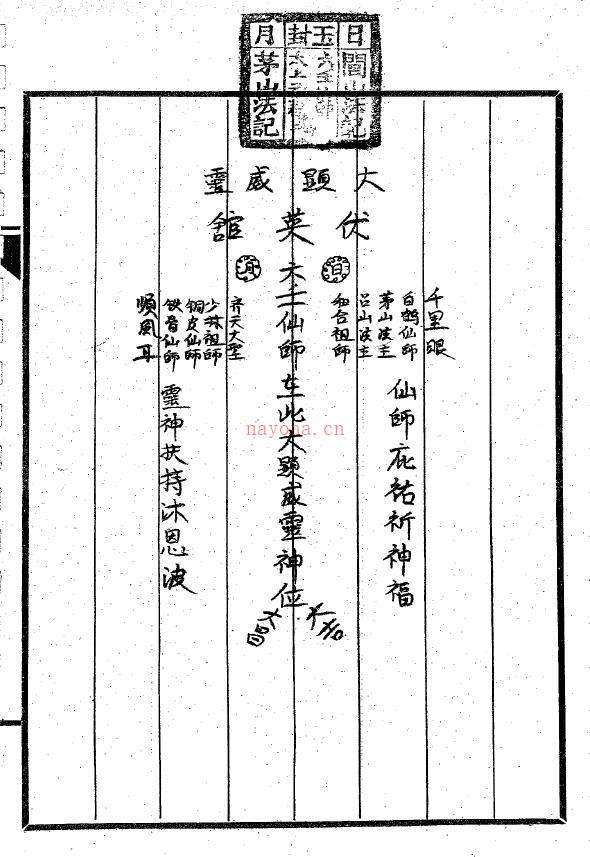 日玉封月
閭山法記
六壬仙師
茅山法記
大顯威靈
伏英舘
千里眼
白鶴仙師
茅山法主
吕山法主
和合祖師
仙師庇祐祈神福
六壬仙師在此大顯威靈神位
齐天大聖
少林祖師
铜皮仙師
铁骨仙師
順風耳
靈神扶持沐恩波
大吉
大昌
nayona.cn